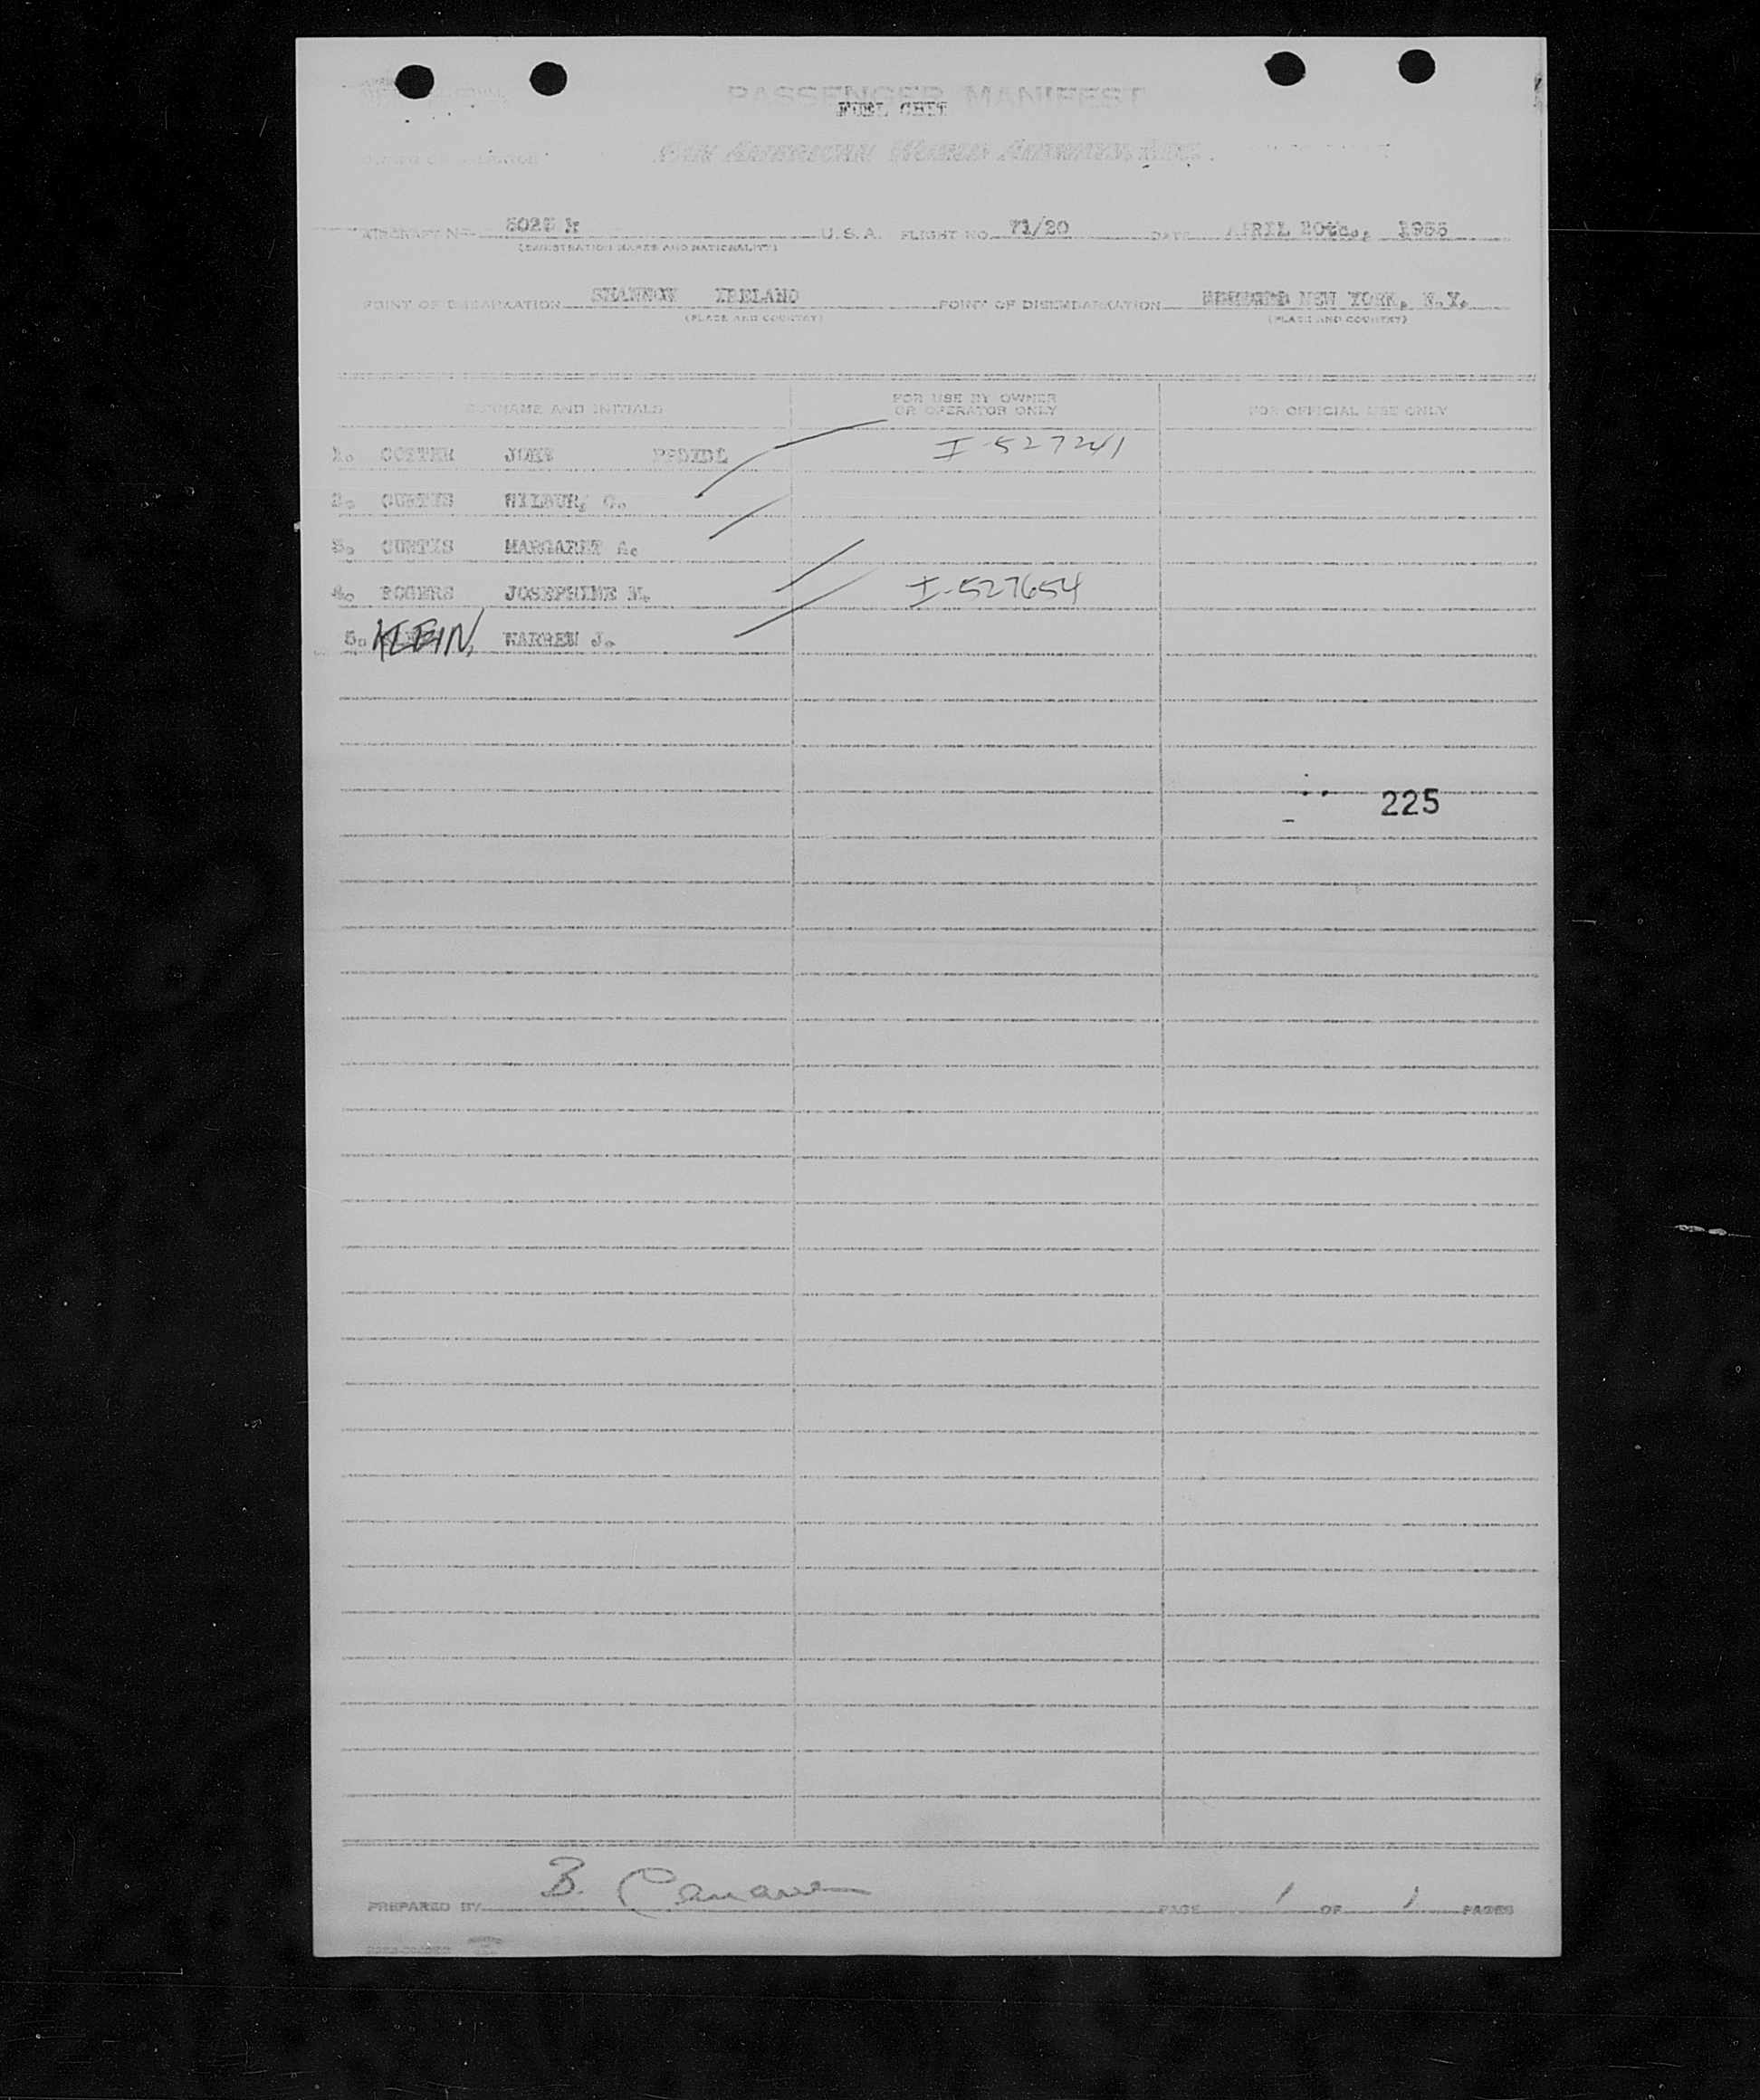 PASSENGER MANIFEST
FUEL CHIT
PAN AMERICAN WORLD AIRWAYS, INC.
AIRCRAFT NO. U.S.A. FLIGHT NO. 71/20 DATE APRIL 20th., 1955
(REGISTRATION MARKS AND NATIONALITY)
POINT OF EMBARKATION SHANNON IRELAND POINT OF DISEMBARKATION NEW YORK, N.Y.
(PLACE AND COUNTRY) (PLACE AND COUNTRY)
SURNAME AND INITIALS FOR USE BY OWNER OR OPERATOR ONLY FOR OFFICIAL USE ONLY
1. JOHN I-527241
2. CURTIS WILBUR, C.
3. CURTIS MARGARET A.
4. ROGERS JOSEPHINE M. I-527654
5. KLEIN, WARREN J.
225
PREPARED BY B. PAGE 1 OF 1 PAGES